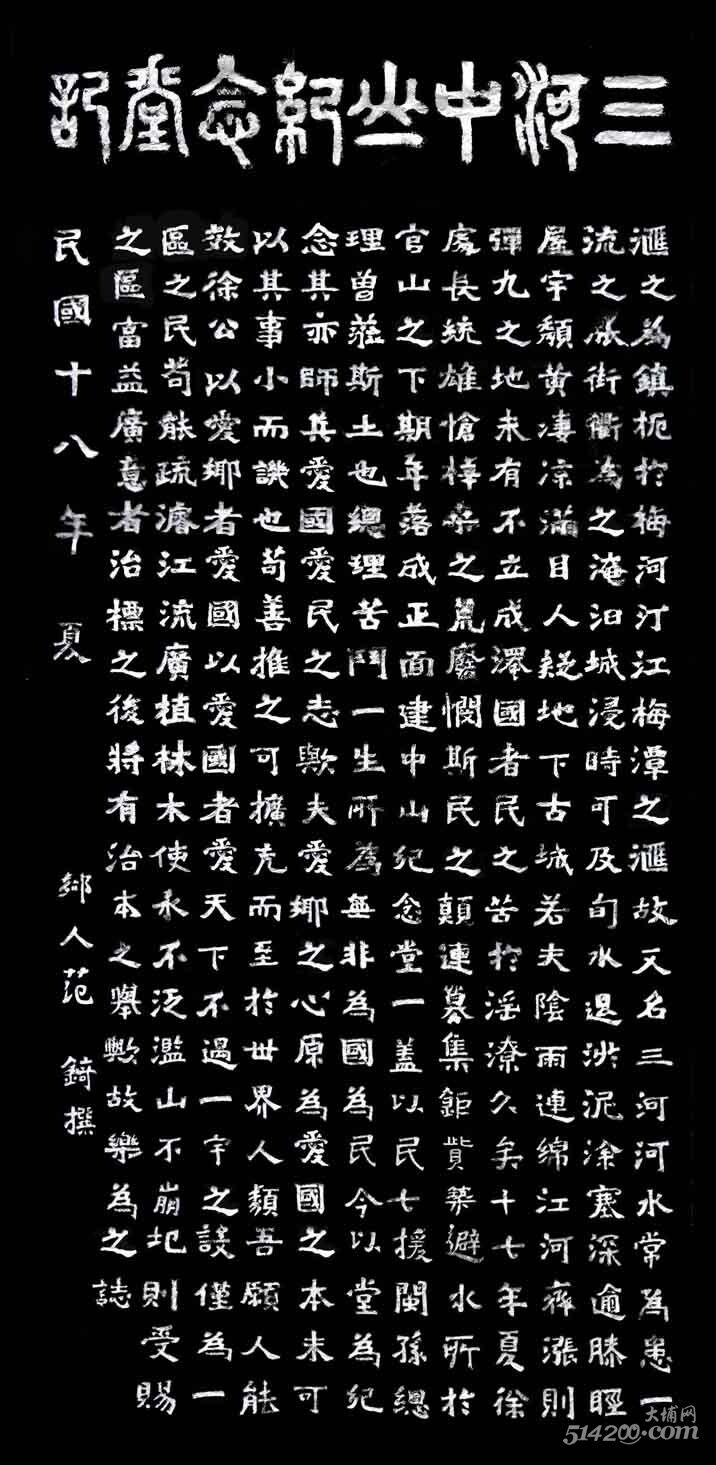 三河中山紀念堂記
滙之為鎮扼於梅河汀江梅潭之滙故又名三河河水常為患一
流之漲街衢為之淹汩城浸時可及旬水退淤泥塗塞深逾膝脛
屋宇頹黄凄凉滿目人疑地下古城若夫陰雨連綿江河齊漲則
彈九之地未有不立成澤國者民之苦於淫潦久矣十七年夏徐
處長統雄愴梓桑之荒廢憫斯民之顛連募集鉅貲築避水所於
官山之下期年落成正面建中山紀念堂一蓋以民七援閩孫總
理曾蒞斯土也總理苦鬥一生所為無非為國為民今以堂為紀
念其亦師其愛國愛民之志歟夫愛鄉之心原為愛國之本未可
以其事小而譏也苟善推之可擴充而至於世界人類吾願人能
效徐公以愛鄉者愛國以愛國者愛天下不過一字之設僅為一
區之民苟能疏濬江流廣植林木使永不泛濫山不崩圮則受賜
之區富益廣意者治標之後將有治本之舉歟故樂為之誌
民國十八年 夏 鄉人范 錡撰
大埔网
514200.com